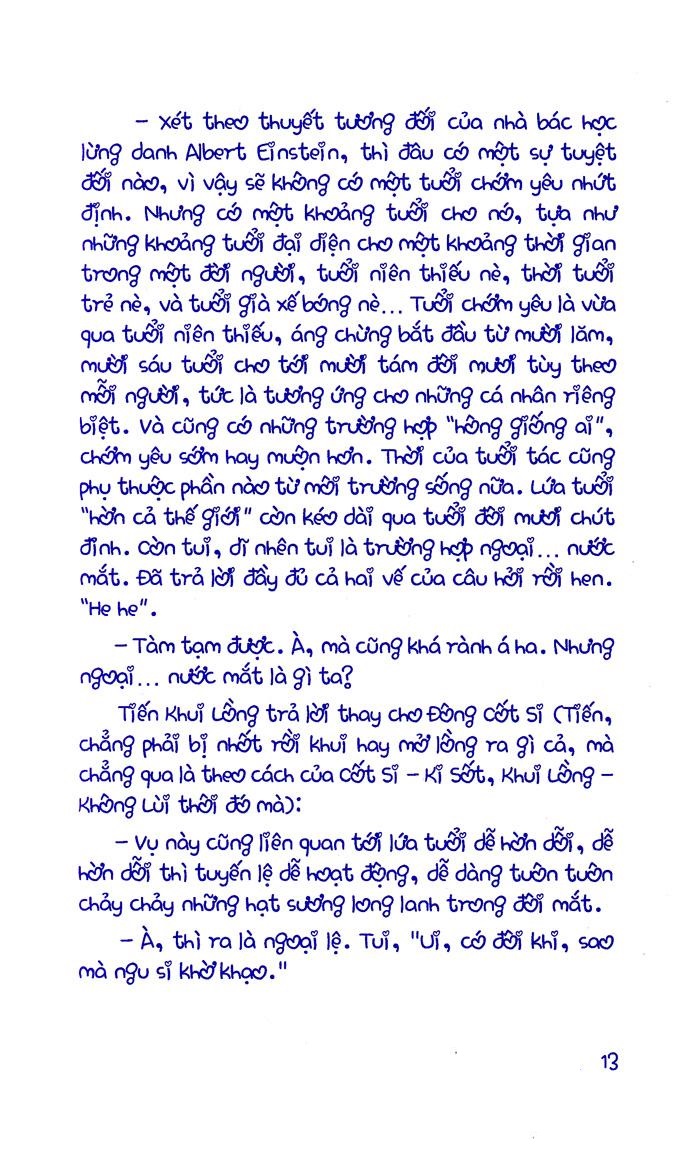 – Xét theo thuyết tương đối của nhà bác học
lừng danh Albert Einstein, thì đâu có một sự tuyệt
đối nào, vì vậy sẽ không có một tuổi chớm yêu nhứt
định. Nhưng có một khoảng tuổi cho nó, tựa như
những khoảng tuổi đại diện cho một khoảng thời gian
trong một đời người, tuổi niên thiếu nè, thời tuổi
trẻ nè, và tuổi già xế bóng nè... Tuổi chớm yêu là vừa
qua tuổi niên thiếu, áng chừng bắt đầu từ mười lăm,
mười sáu tuổi cho tới mười tám đôi mươi tùy theo
mỗi người, tức là tương ứng cho những cá nhân riêng
biệt. Và cũng có những trường hợp "hông giống ai",
chớm yêu sớm hay muộn hơn. Thời của tuổi tác cũng
phụ thuộc phần nào từ môi trường sống nữa. Lứa tuổi
"hờn cả thế giới" còn kéo dài qua tuổi đôi mươi chút
đỉnh. Còn tui, dĩ nhiên tui là trường hợp ngoại... nước
mắt. Đã trả lời đầy đủ cả hai vế của câu hỏi rồi hen.
"He he".
– Tàm tạm được. À, mà cũng khá rành á ha. Nhưng
ngoại... nước mắt là gì ta?
Tiến Khui Lồng trả lời thay cho Đông Cốt Si (Tiến,
chẳng phải bị nhốt rồi khui hay mở lồng ra gì cả, mà
chẳng qua là theo cách của Cốt Si – Kí Sốt, Khui Lồng –
Không Lùi thôi đó mà):
– Vụ này cũng liên quan tới lứa tuổi dễ hờn dỗi, dễ
hờn dỗi thì tuyến lệ dễ hoạt động, dễ dàng tuôn tuôn
chảy chảy những hạt sương long lanh trong đôi mắt.
– À, thì ra là ngoại lệ. Tui, "Ui, có đôi khi, sao
mà ngu si khờ khạo."
13